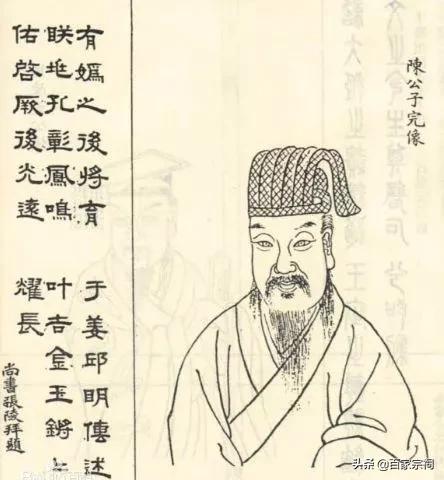 陳公子完像
有嬀之後將育 于姜邱明傳述
朕兆孔彰鳳鳴 叶吉金玉鏘々
佑啓厥後光遠 耀長
尚書張陵拜題
头条 @百家宗祠